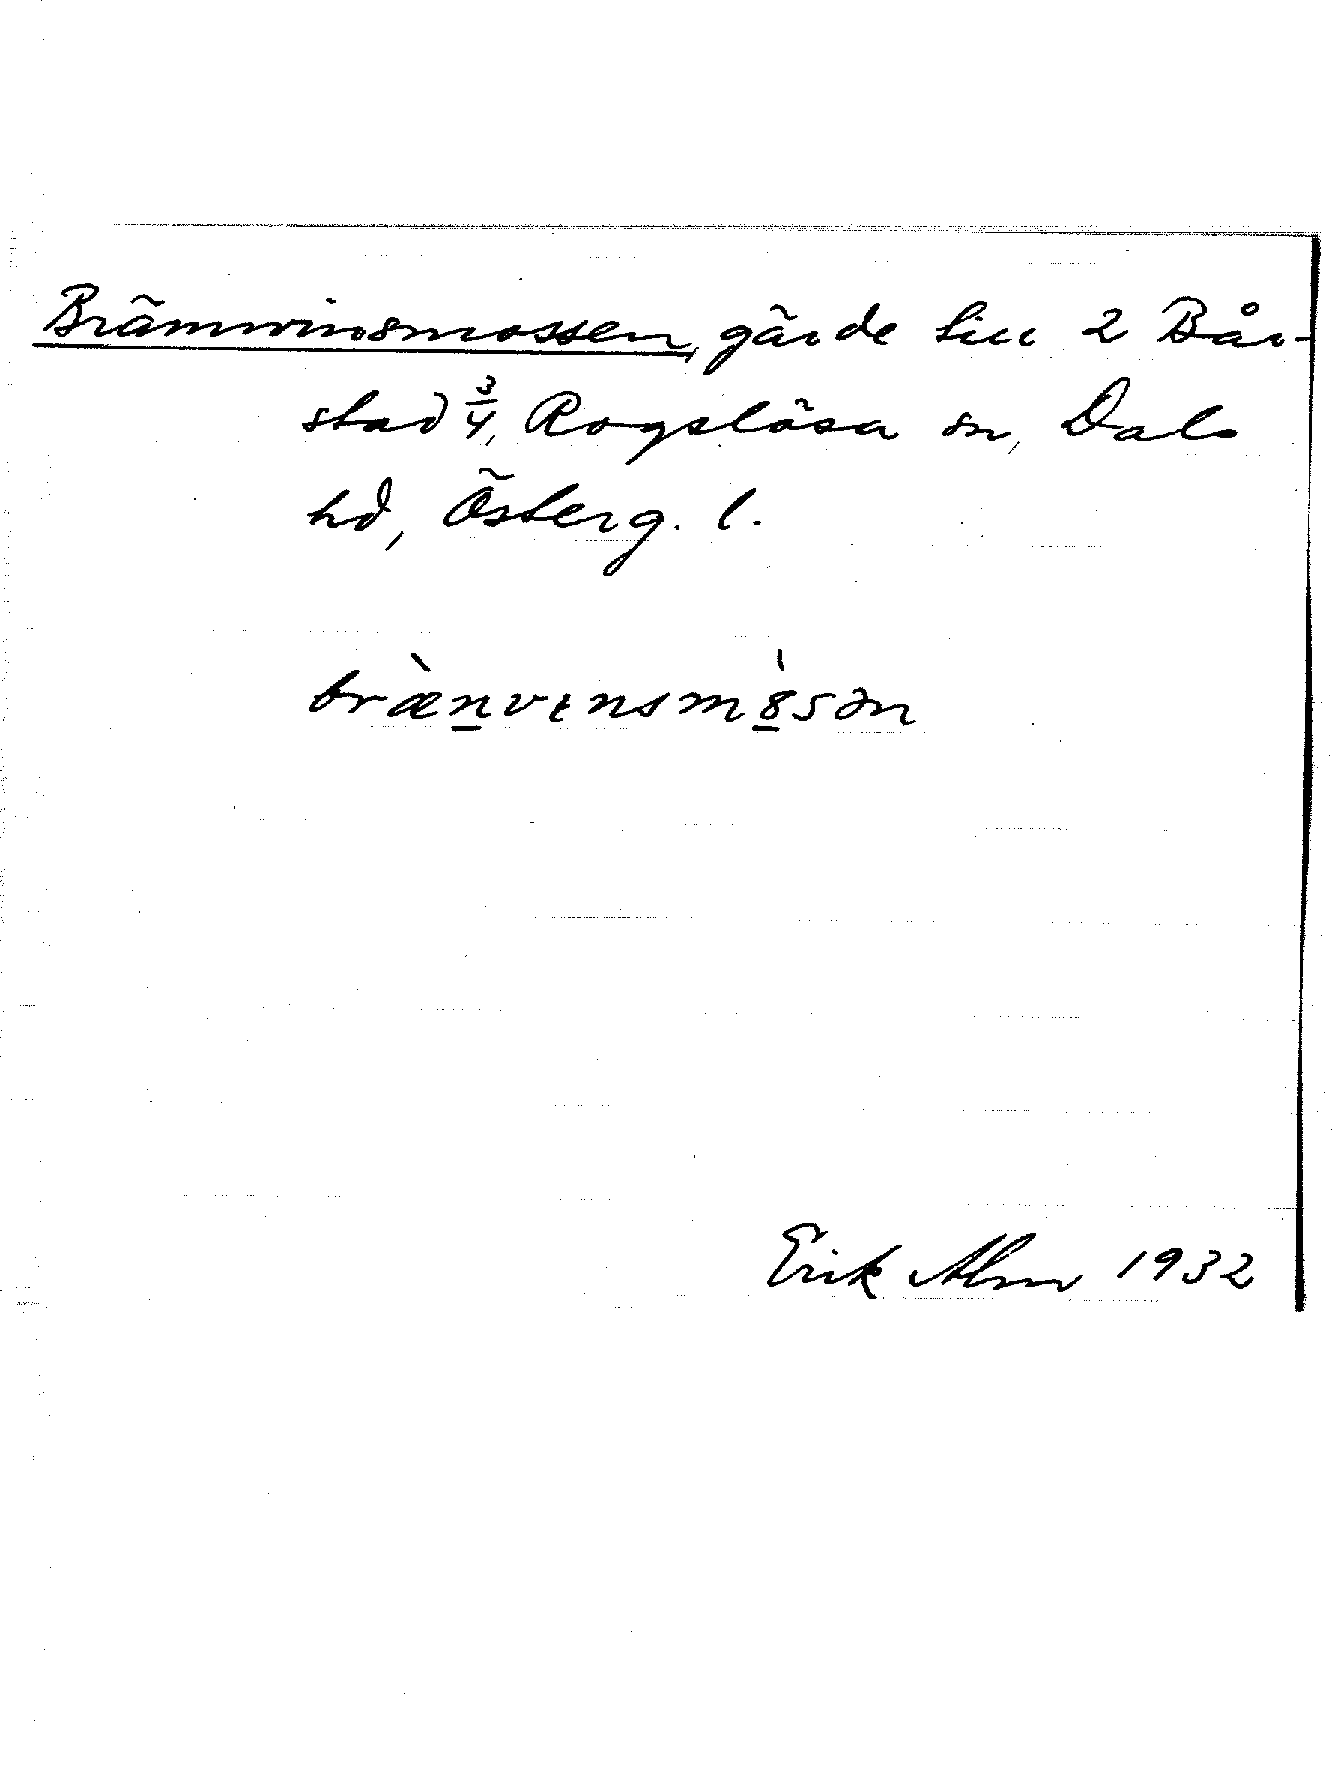 Brännvinsmossen, gärde till 2 Bår-
stad 3/4, Rogslösa sn, Dals
hd, Österg. l.
bræ̀n̲vɩnsmò̲sən
Erik Alm 1932